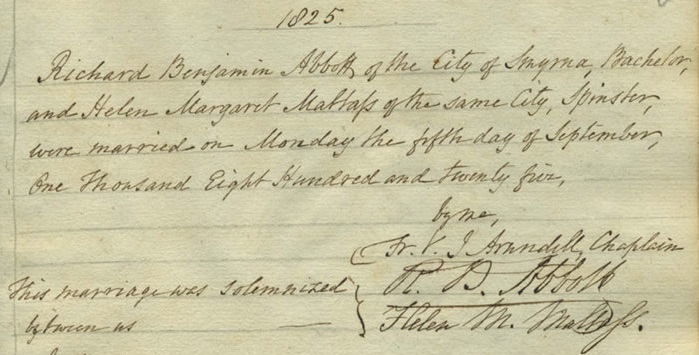 1825.
Richard Benjamin Abbott of the City of Smyrna, Bachelor,
and Helen Margaret Maltass of the same City, Spinster,
were married on Monday the fifth day of September,
One Thousand Eight Hundred and twenty five,
by me,
Fr. V. J. Arundell, Chaplain
This marriage was solemnized
between us
R. B. Abbott
Helen M. Maltass.